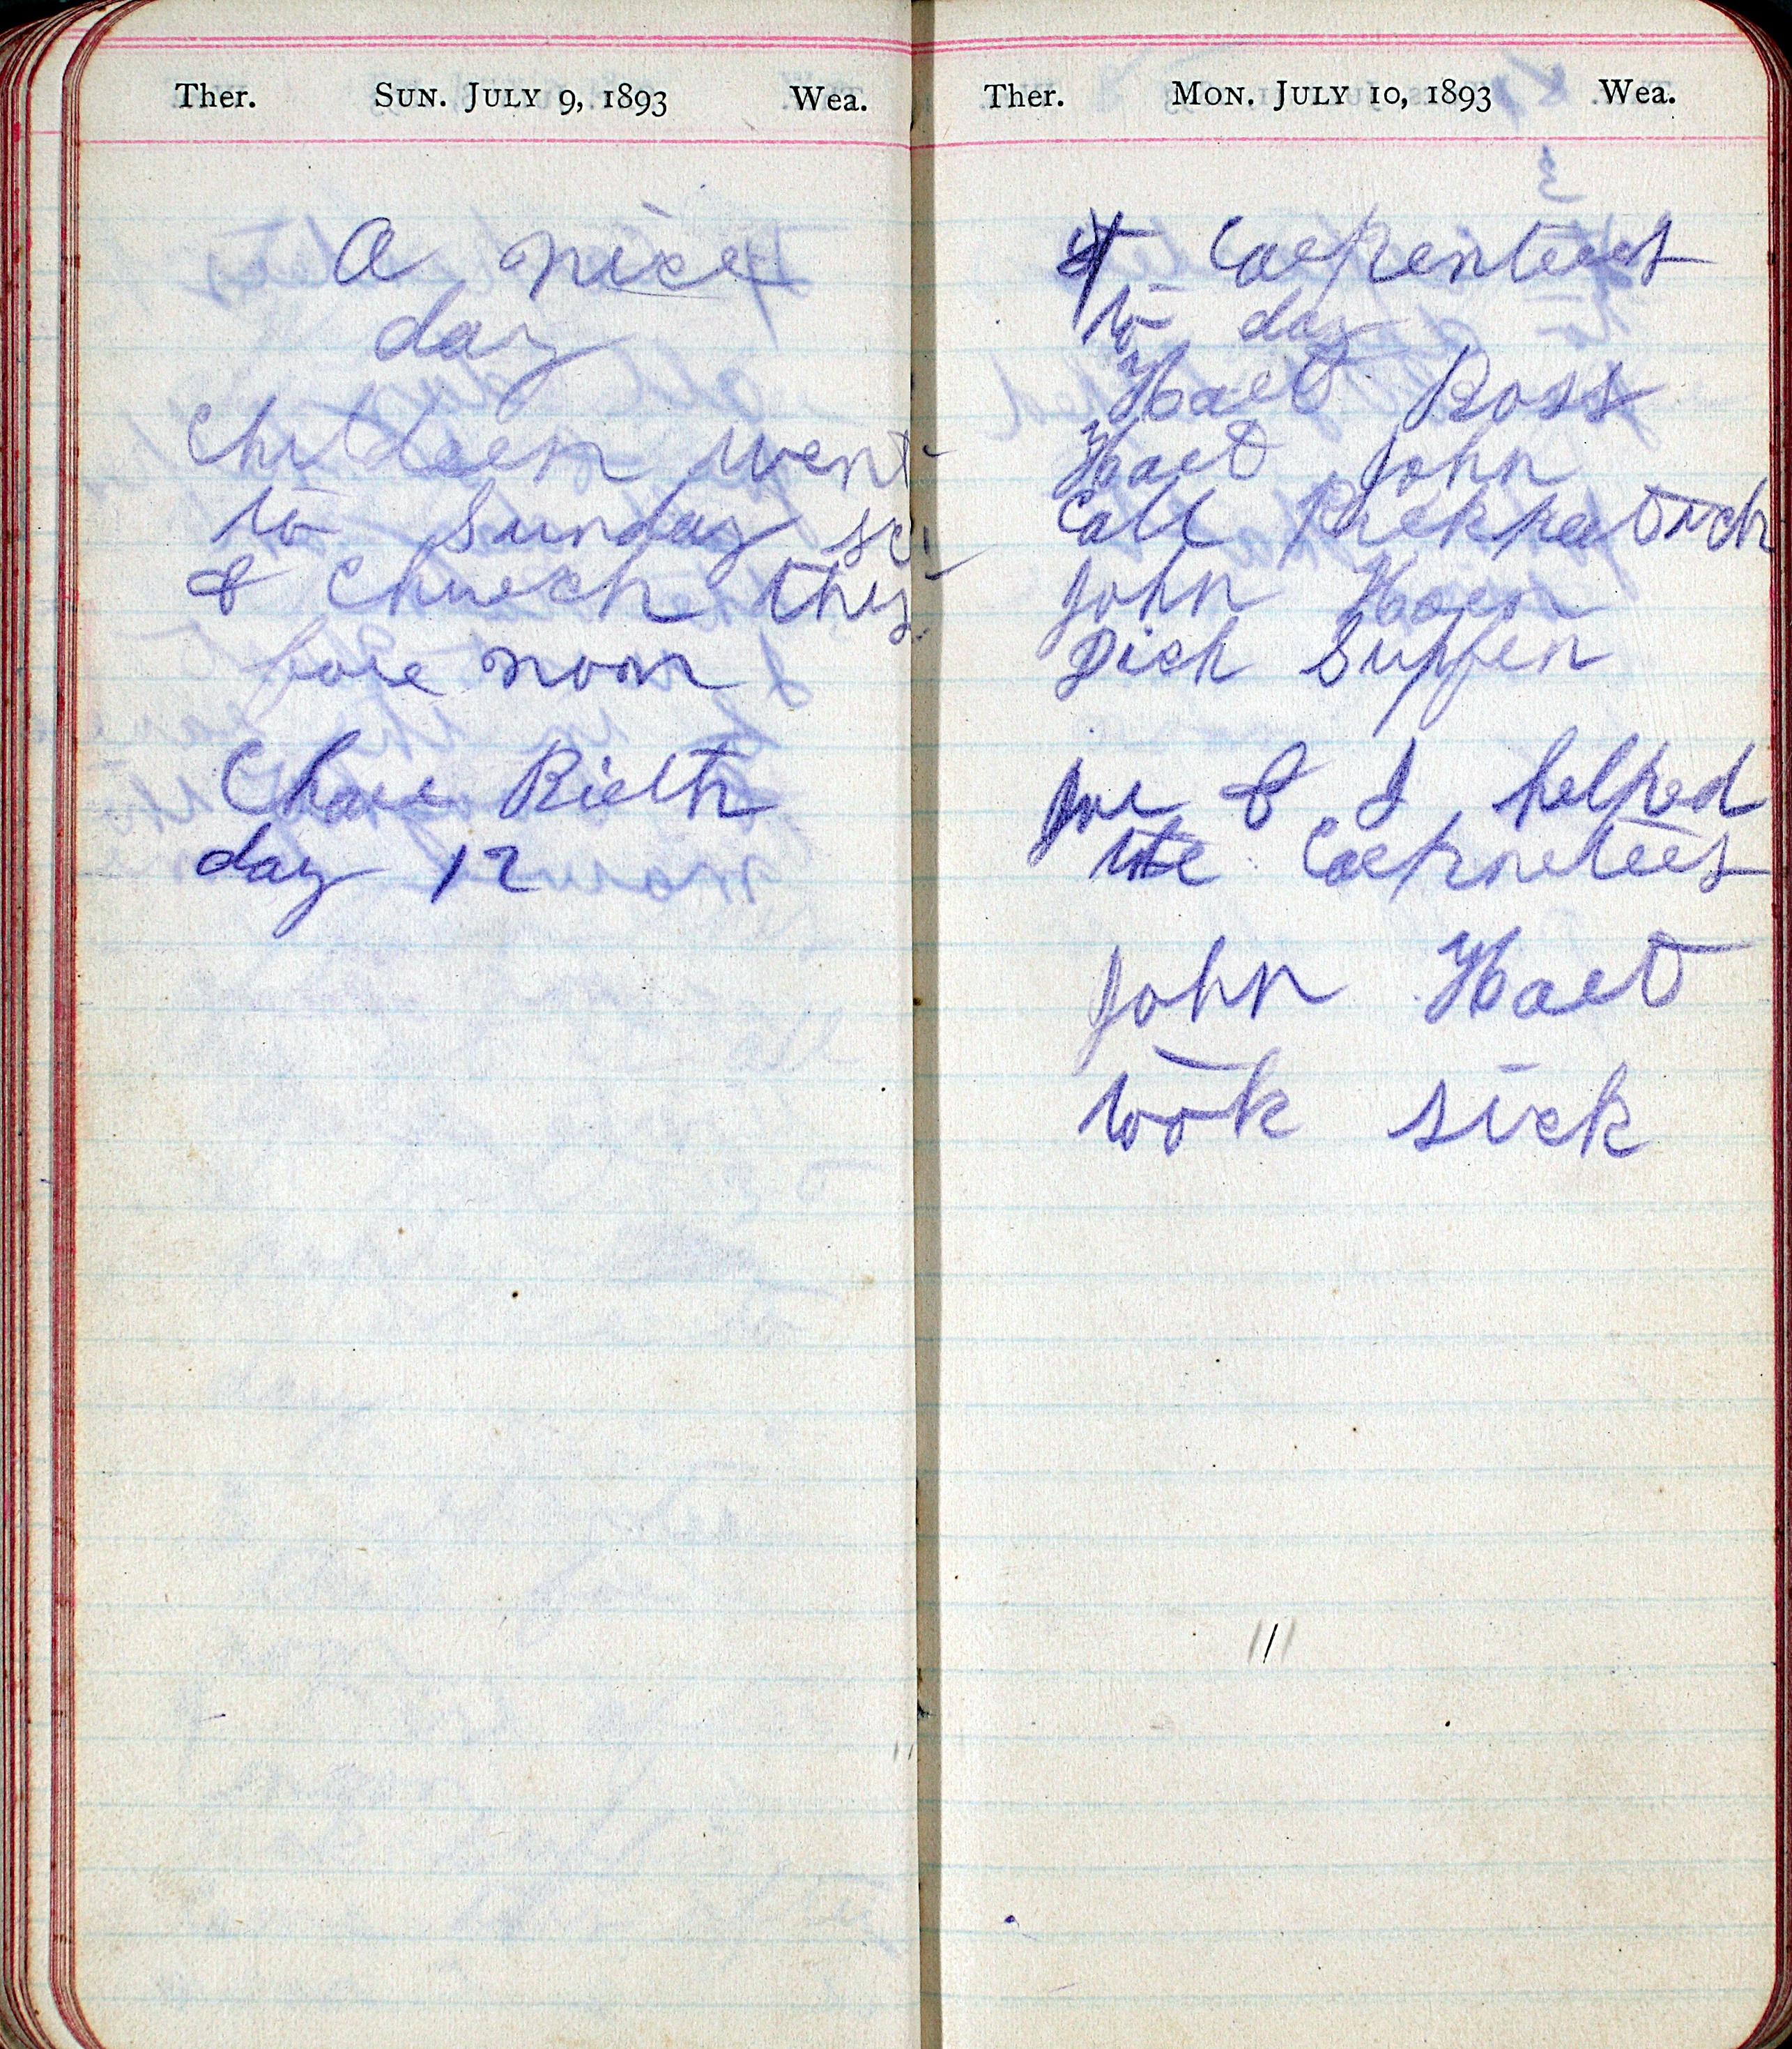 Ther. SUN. JULY 9, 1893 Wea.
A nice
day
Children went
to Sunday sc
& Church this
fore noon
Chare Birth
day 12
Ther. MON. JULY 10, 1893 Wea.
Carpenters
to day
Hart Ross
Hart John
Call Kirkpatrich
John Horn
Dick Supfen
Joe & I helped
the Carpneters
John Hart
took sick